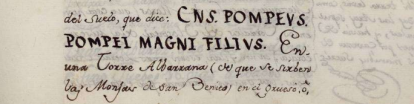 del suelo, que dice: CNS. POMPEVS.
POMPEI MAGNI FILIVS. En
una Torre Albarrana (de que se sirben
las Monjas de San Benito) en el grueso,